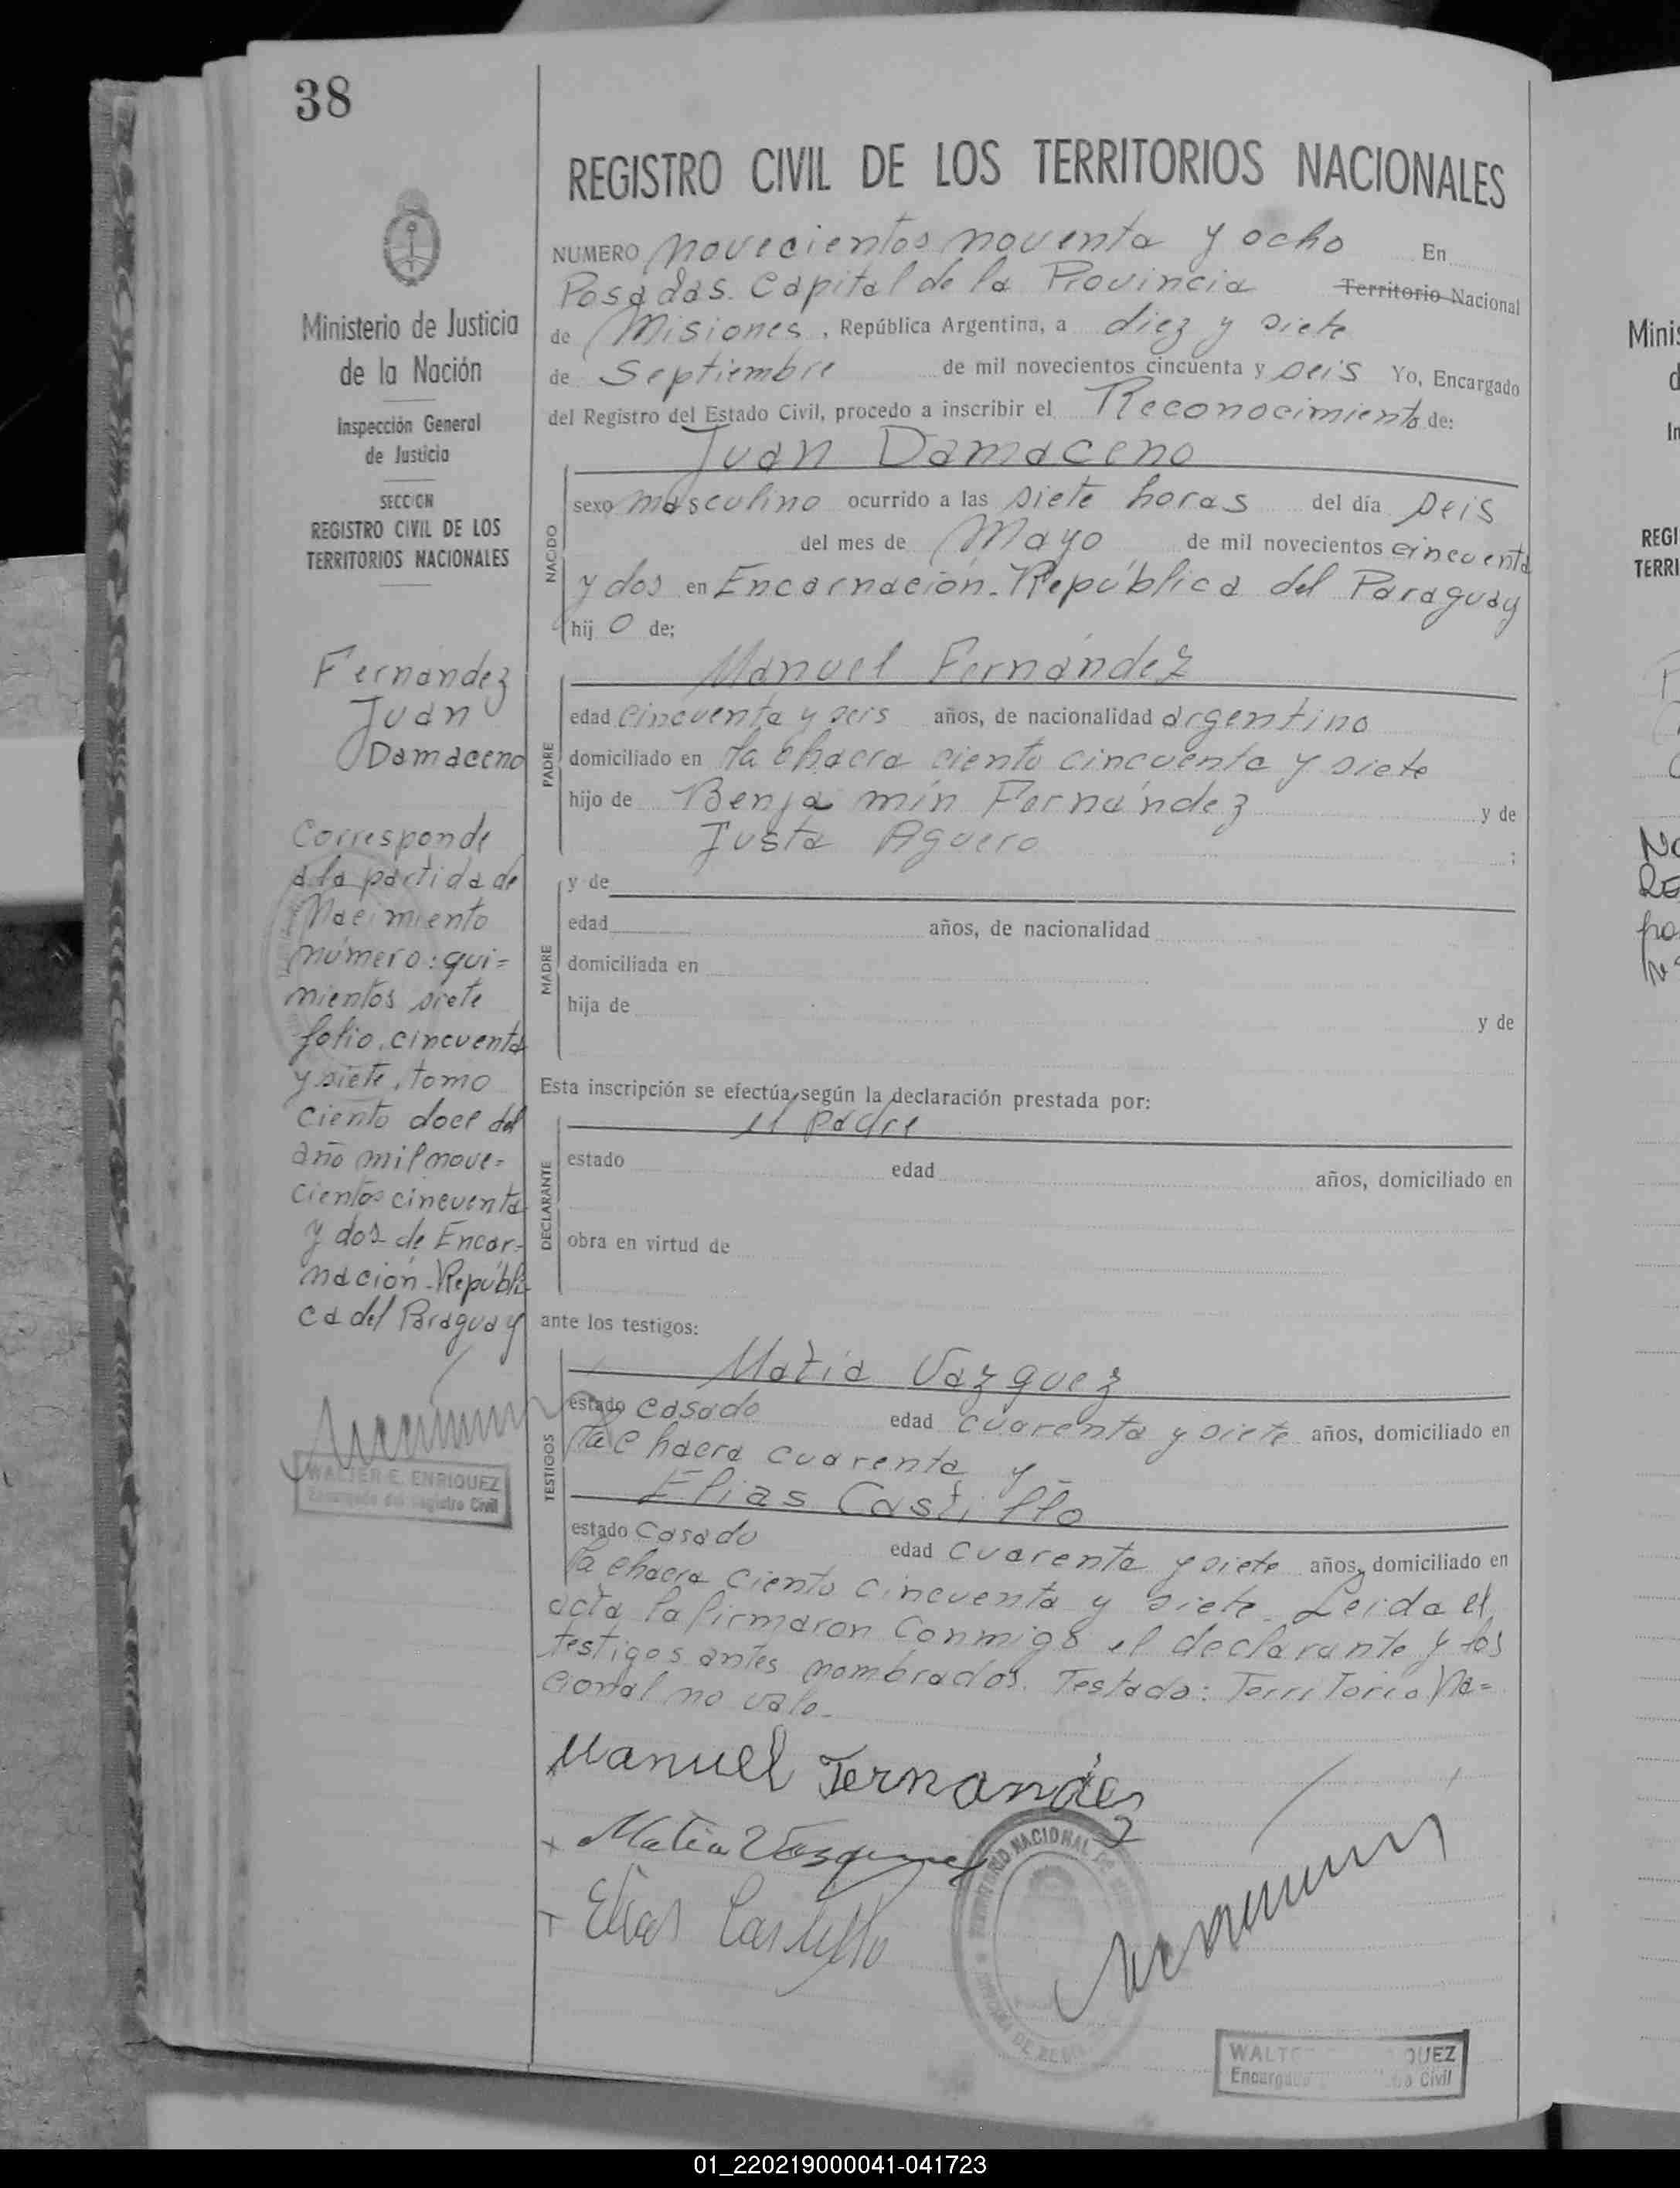 38
REGISTRO CIVIL DE LOS TERRITORIOS NACIONALES
NUMERO novecientos noventa y ocho En
Posadas. Capital de la Provincia Territorio Nacional
de Misiones, República Argentina, a diez y siete
de Septiembre de mil novecientos cincuenta y seis Yo, Encargado
del Registro del Estado Civil, procedo a inscribir el Reconocimiento de:
Juan Damaceno
NACIDO
sexo masculino ocurrido a las siete horas del día seis
del mes de Mayo de mil novecientos cincuenta
y dos en Encarnación. República del Paraguay
hij o de;
Manuel Fernández
PADRE
edad cincuenta y seis años, de nacionalidad argentino
domiciliado en la chacra ciento cincuenta y siete
hijo de Benjamín Fernández y de
Justa Aguero ;
MADRE
y de
edad años, de nacionalidad
domiciliada en
hija de
y de
Esta inscripción se efectúa según la declaración prestada por:
el padre
DECLARANTE
estado edad años, domiciliado en
obra en virtud de
ante los testigos:
Matia Vazquez
TESTIGOS
estado casado edad cuarenta y siete años, domiciliado en
la chacra cuarenta y
Elias Castillo
estado casado edad cuarenta y siete años, domiciliado en
la chacra ciento cincuenta y siete. Leida el
acta la firmaron conmigo el declarante y los
testigos antes nombrados. Testado: Territorio Na=
cional no vale.
Manuel Fernandez
Matia Vazquez
Elias Castillo
TERRITORIO NACIONAL DE
WALTE QUEZ
Encargado Civil
Ministerio de Justicia
de la Nación
Inspección General
de Justicia
SECCION
REGISTRO CIVIL DE LOS
TERRITORIOS NACIONALES
Fernández
Juan
Damaceno
Corresponde
a la partida de
Nacimiento
número: qui=
nientos siete
folio, cincuenta
y siete, tomo
ciento doce del
año mil nove=
cientos cincuenta
y dos de Encar=
nación. Repúbli
ca del Paraguay
WALTER E. ENRIQUEZ
Encargado del Registro Civil
Minis
d
In
REGI
TERRI
No
RE
po
01_220219000041-041723